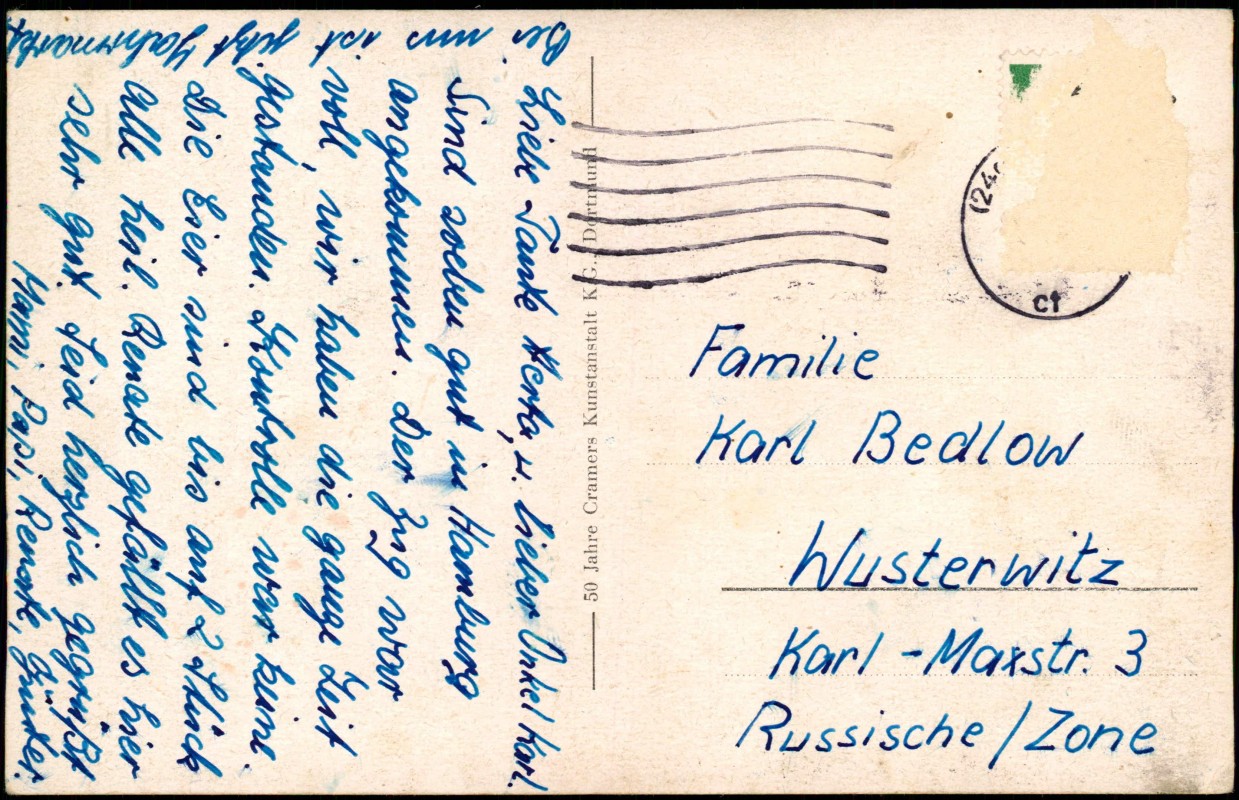 Liebe Tante Herta, u. lieber Onkel Karl.
Sind soeben gut in Hamburg
angekommen. Der Zug war
voll, wir haben die ganze Zeit
gestanden. Kontrolle war keine.
Die Eier sind bis auf 2 Stück
Alle heil. Renate gefällt es hier
sehr gut. Seid herzlich gegrüßt
Renate, Günter.
Bei uns ist jetzt Jahrmarkt
50 Jahre Cramers Kunstanstalt K.G., Dortmund
(24a
ct
Familie
Karl Bedlow
Wusterwitz
Karl-Maxstr. 3
Russische/Zone